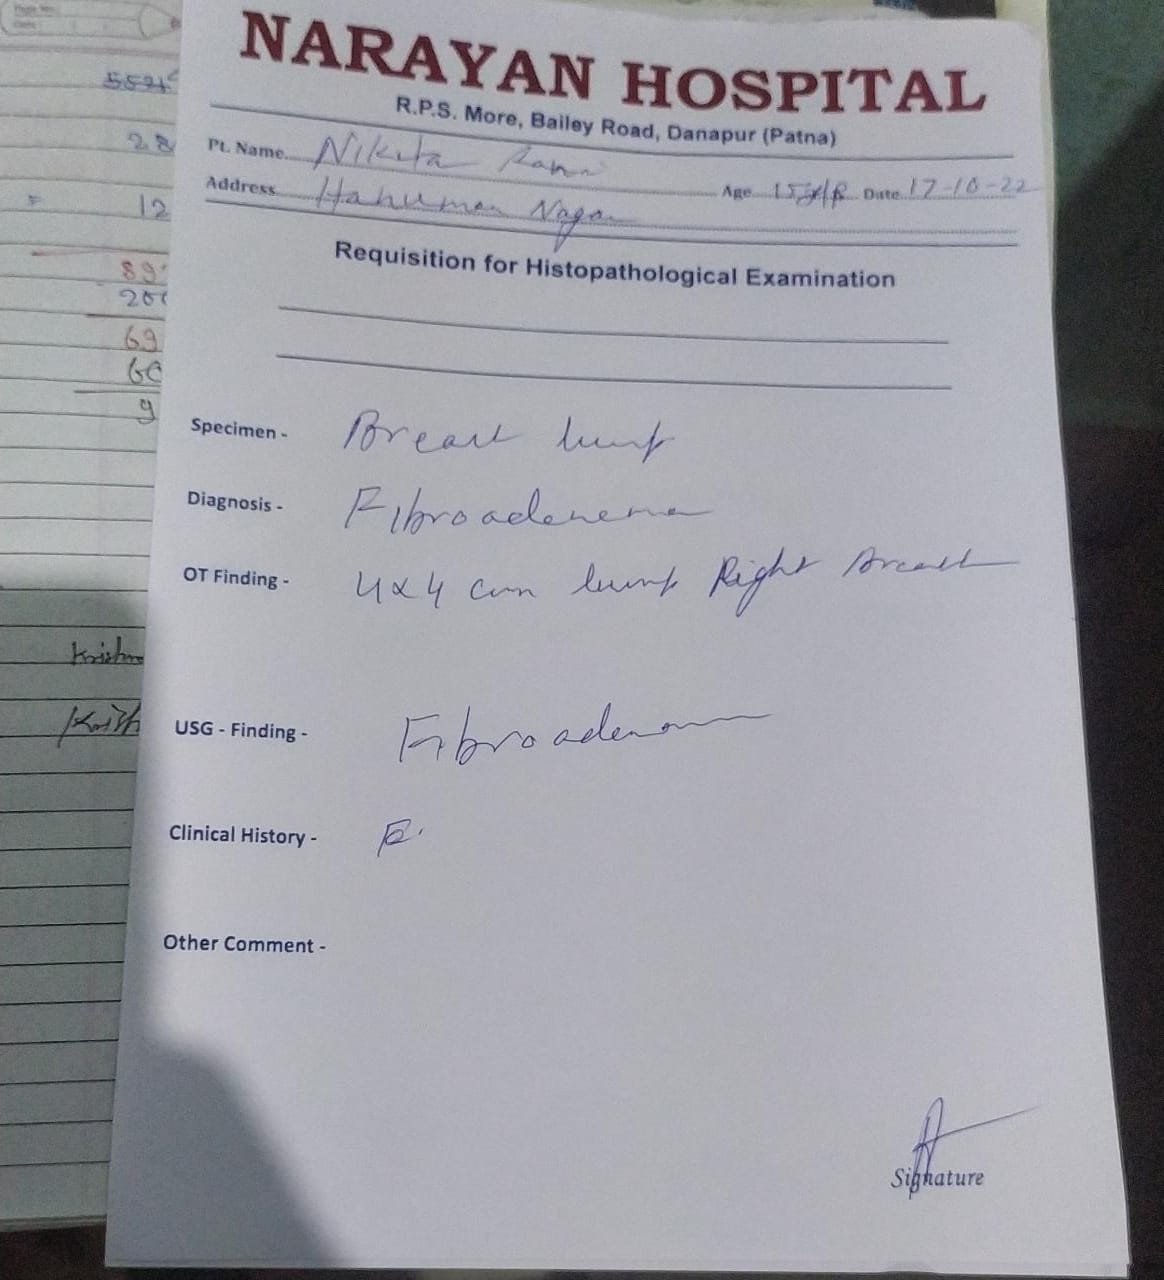 NARAYAN HOSPITAL
R.P.S. More, Bailey Road, Danapur (Patna)
Pt. Name Nikita Rani
Age 15y/F Date 17-10-22
Address Hanuman Nagar
Requisition for Histopathological Examination
Specimen - Breast lump
Diagnosis - Fibroadenoma
OT Finding - 4x4 cm lump Right Breast
USG - Finding - Fibroadenoma
Clinical History -
Other Comment -
Signature
28
12
89
200
69
60
9
Krishn